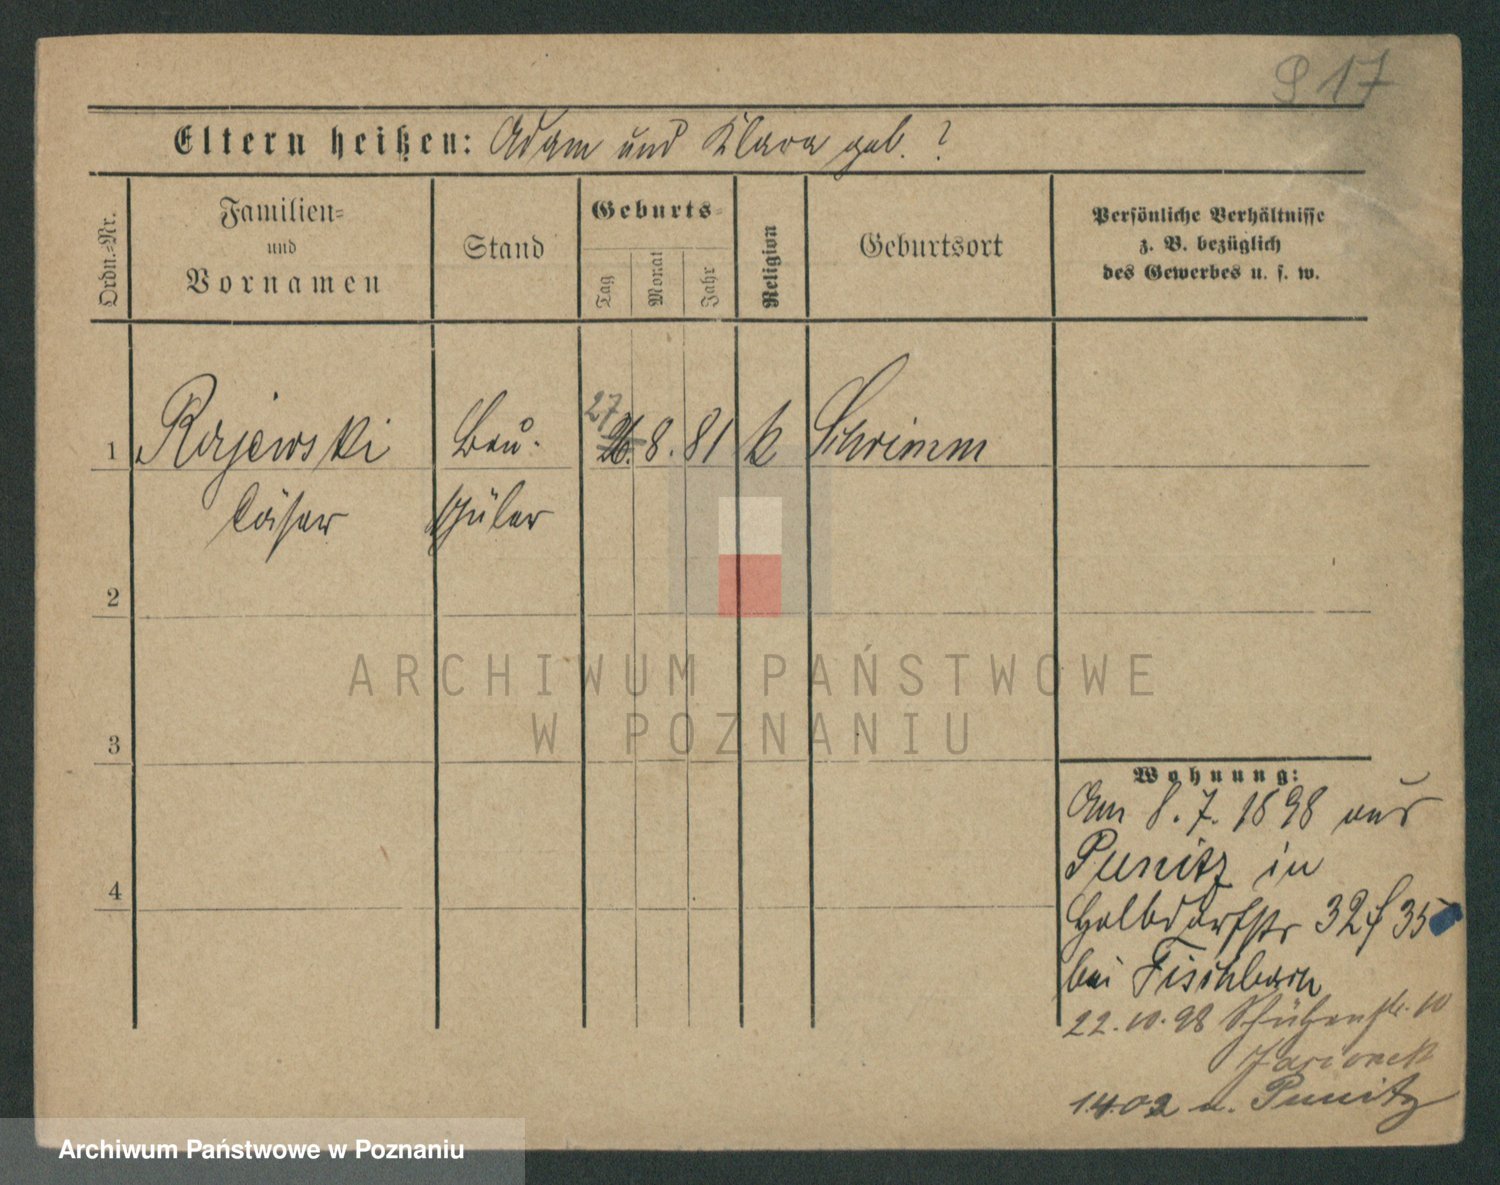 S 17
Eltern heißen: Adam und Klara geb. ?
Ordn.=Nr.
Familien=
und
Vornamen
Stand
Geburts=
Tag
Monat
Jahr
Religion
Geburtsort
Persönliche Verhältnisse
z. B. bezüglich
des Gewerbes u. s. w.
27
1 Rajewski Bau- 26. 8. 81 k Schrimm
Cäsar schüler
2
3
4
Wohnung:
Am 8. 7. 1898 aus
Punitz in
Halbdorfstr 32 / 35
bei Fischbach
22.10.98 Schützenstr. 10
1.4.02 n. Punitz
ARCHIWUM PAŃSTWOWE
W POZNANIU
Archiwum Państwowe w Poznaniu